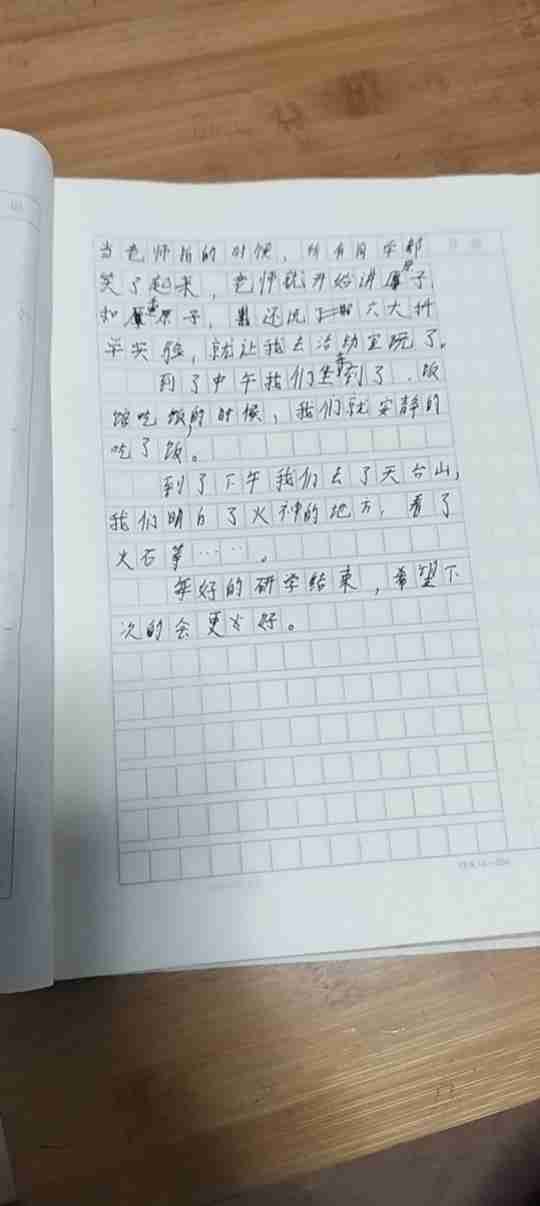 当老师拍的时候，所有同学都
笑了起来，老师就开始讲原子
和原子，还说六大科
学实验，就让我去活动室玩了。
到了中午我们坐到了，饭
馆吃饭的时候，我们就安静的
吃了饭。
到了下午我们去了天台山，
我们明白了火神的地方，看了
火石等……。
美好的研学结束，希望下
次的会更好。